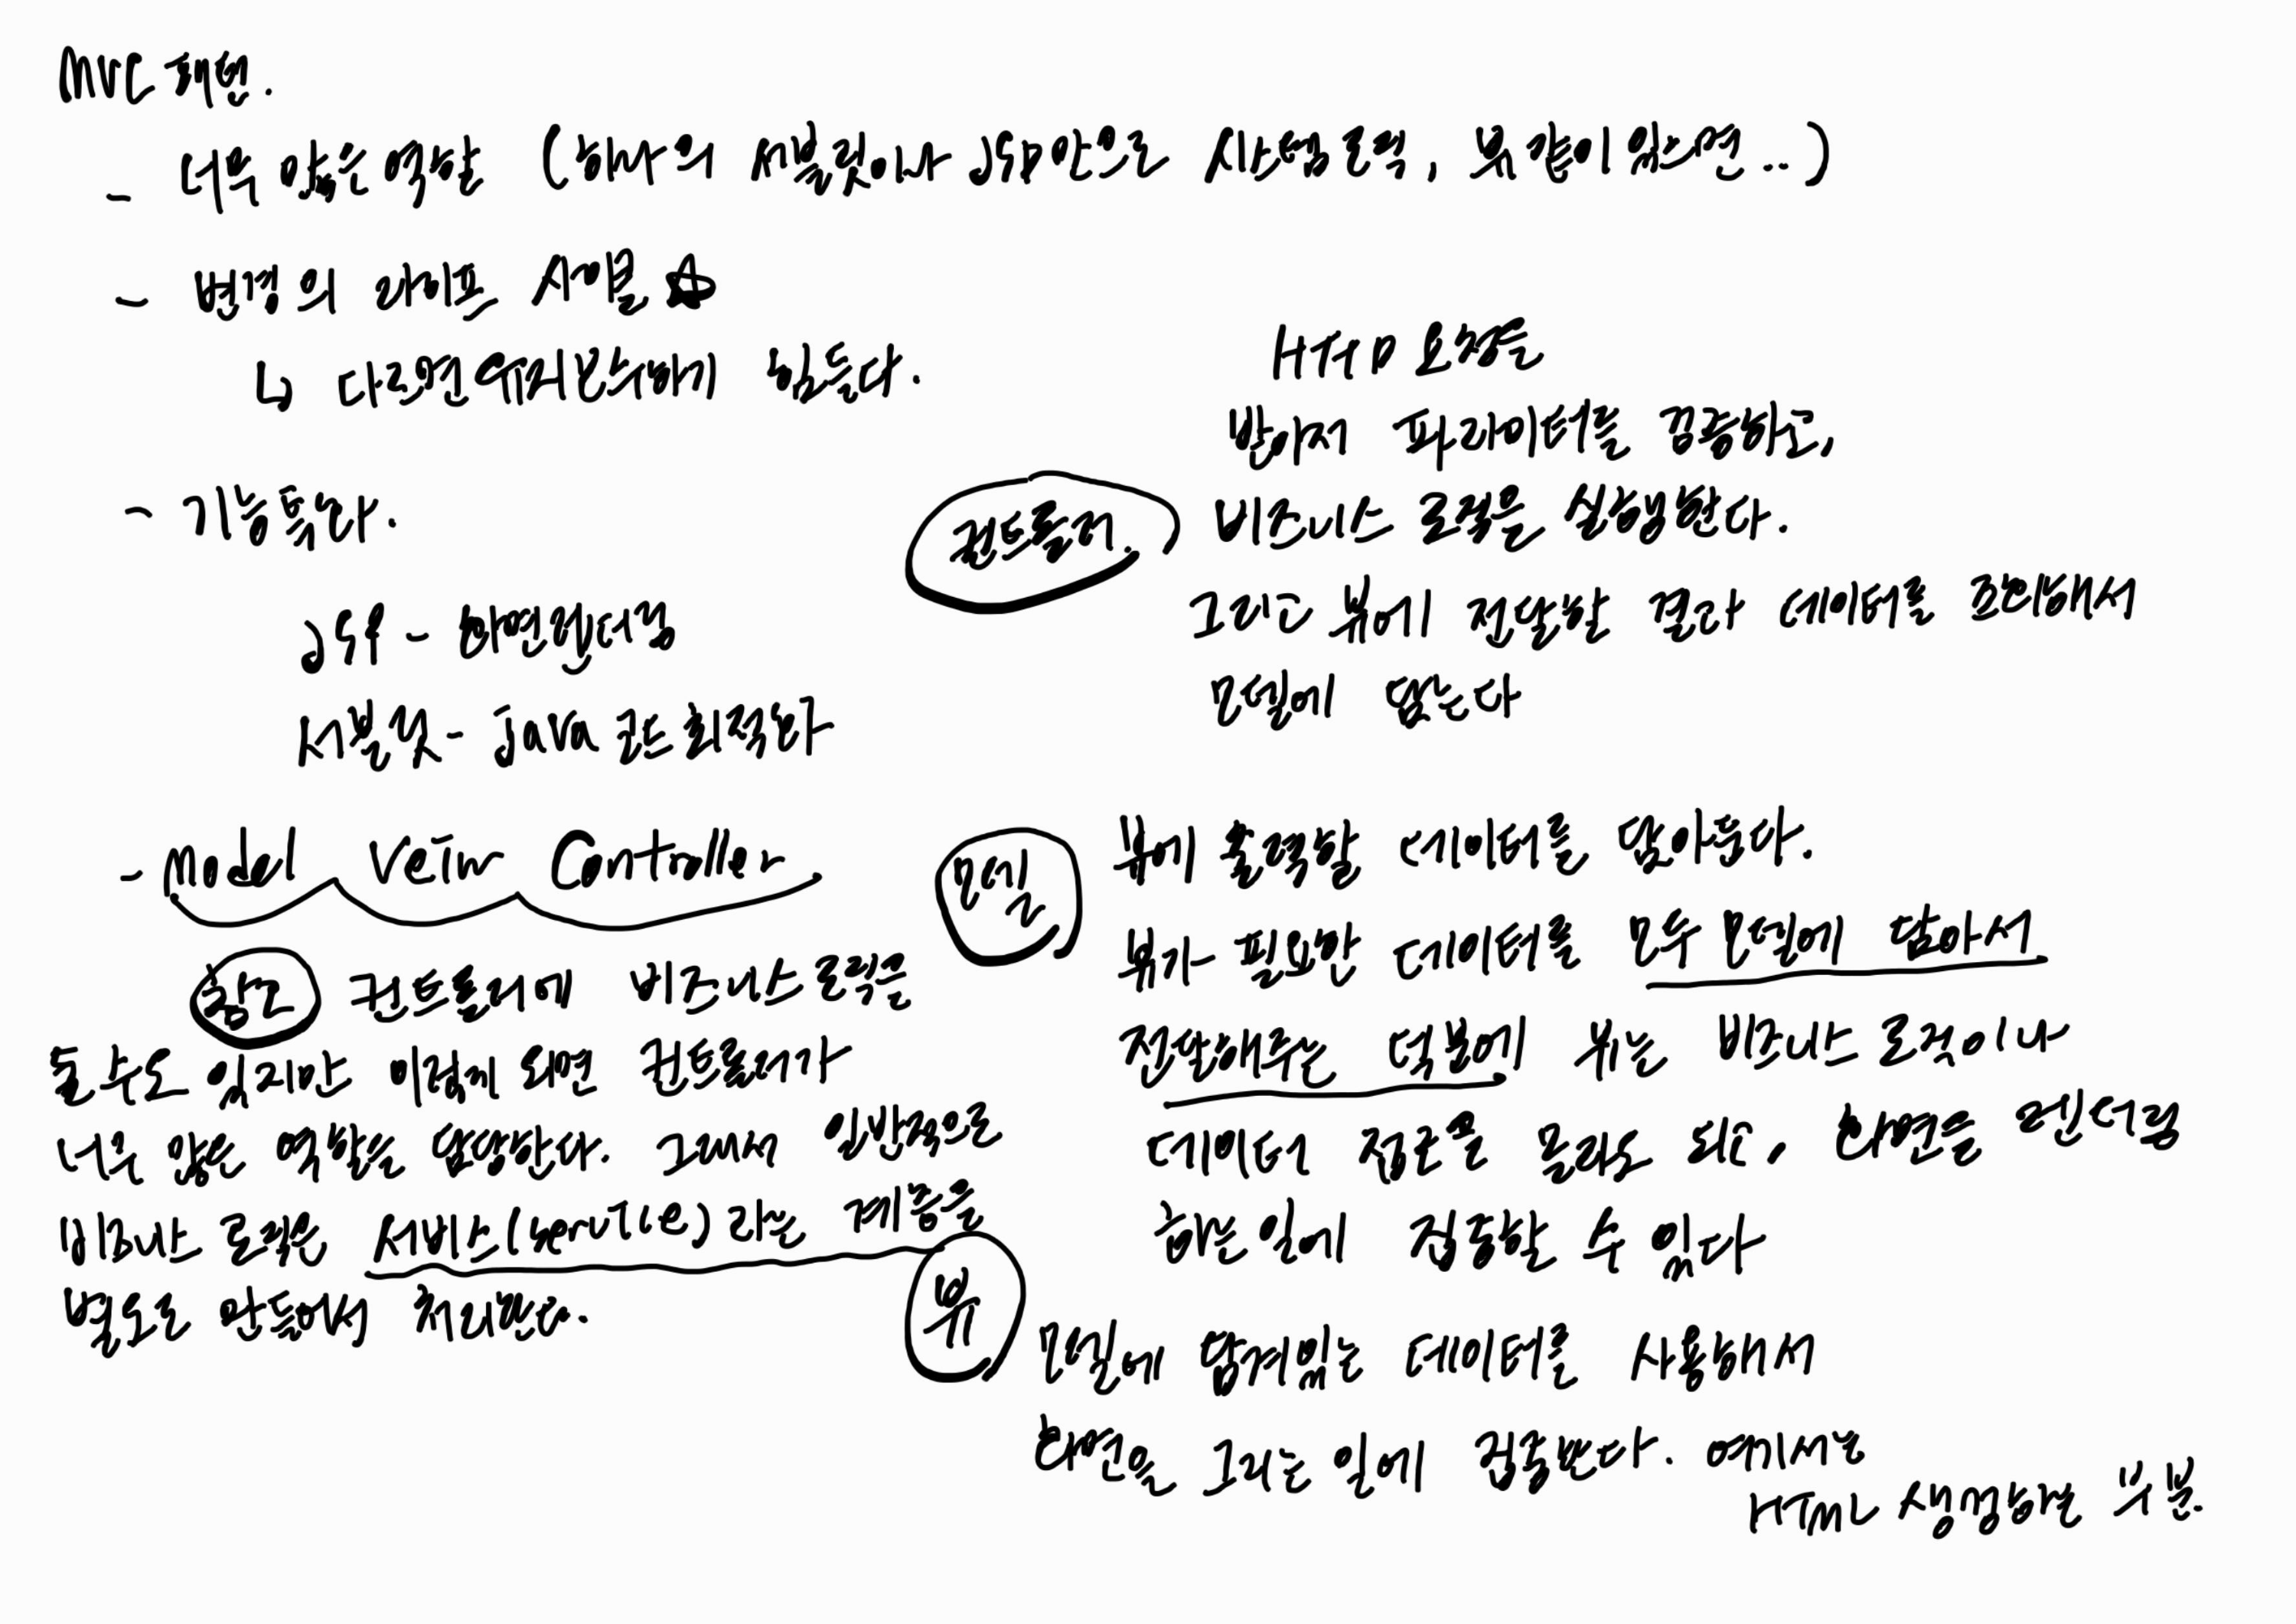 MVC 패턴.
- 너무 많은 역할 (하나의 서블릿이나 JSP만으로 시스템 로직, 뷰 같이 있으면..)
- 변경의 라이프 사이클 ☆
↳ 다르면 유지보수하기 힘들다.
- 기능 특화.
JSP - 화면렌더링
서블릿 - java 코드 최적화
- Model Veiw Controller
참고 컨트롤러에 비즈니스 로직을
둘수도 있지만 이렇게 되면 컨트롤러가
너무 많은 역할을 담당한다. 그래서 일반적으로
비즈니스 로직은 서비스(service)라는 계층을
별도로 만들어서 처리한다.
컨트롤러.
HTTP 요청을
받아서 파라미터를 검증하고,
비즈니스 로직을 실행한다.
그리고 뷰에 전달할 결과 데이터를 조회해서
모델에 담는다
모델
뷰에 출력할 데이터를 담아둔다.
뷰가 필요한 데이터를 모두 모델에 담아서
전달해주는 덕분에 뷰는 비즈니스 로직이나
데이터 접근을 몰라도 되고, 화면을 렌더링
하는 일에 집중할 수 있다
뷰
모델에 담겨있는 데이터를 사용해서
화면을 그리는 일에 집중한다. 여기서는
HTML 생성하는 부분.